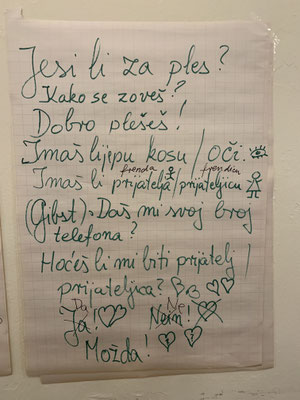 Jesi li za ples?
Kako se zoveš?
Dobro plešeš!
Imaš lijepu kosu / oči.
frenda frendicu
Imaš li prijatelja / prijateljicu
(Gibst). Daš mi svoj broj
telefona?
Hoćeš li mi biti prijatelj /
prijateljica?
Da Ne
Ja! Nein!
Možda!